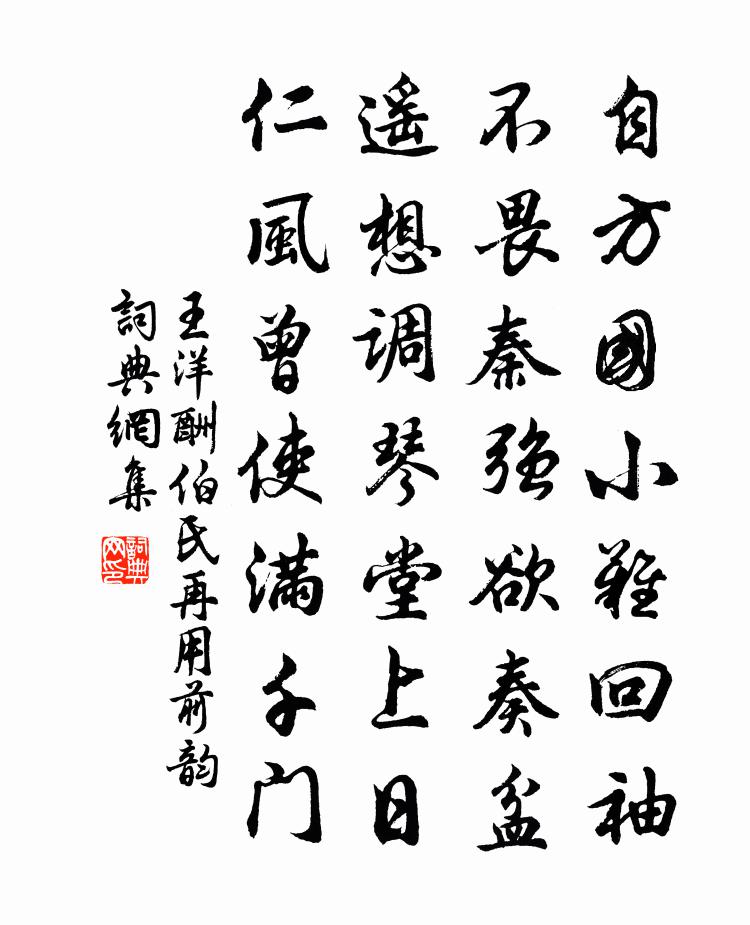 自方國小難回袖
不畏秦強欲奏盆
遥想调琴堂上日
仁風曾使滿千門
王洋酬伯氏再用前韵
詞典網集
詞典网印